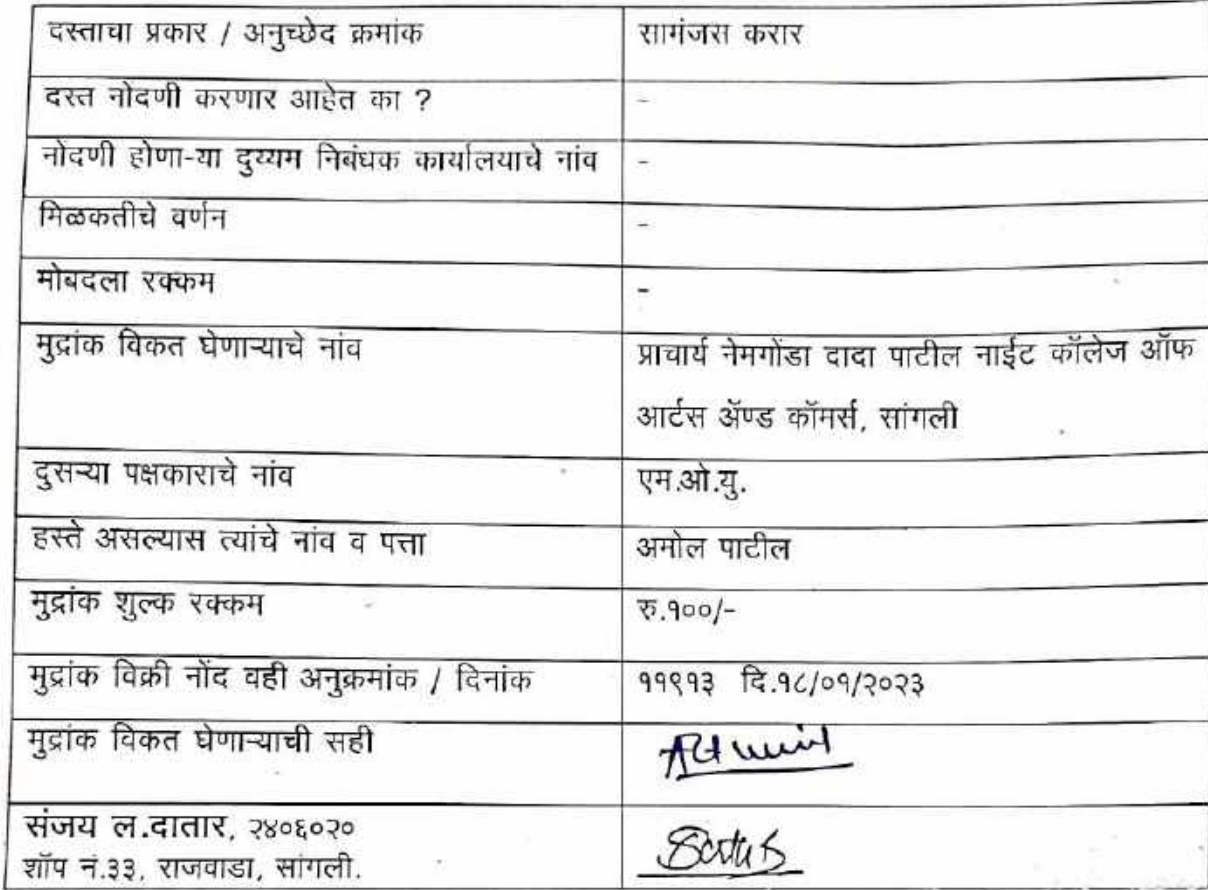 दस्ताचा प्रकार / अनुच्छेद क्रमांक सागंजस करार
दस्त नोदणी करणार आहेत का ? -
नोदणी होणा-या दुय्यम निबंधक कार्यालयाचे नांव -
मिळकतीचे वर्णन -
मोबदला रक्कम -
मुद्रांक विकत घेणाऱ्याचे नांव प्राचार्य नेमगोंडा दादा पाटील नाईट कॉलेज ऑफ
आर्टस ॲण्ड कॉमर्स, सांगली
दुसऱ्या पक्षकाराचे नांव एम.ओ.यु.
हस्ते असल्यास त्यांचे नांव व पत्ता अमोल पाटील
मुद्रांक शुल्क रक्कम रु.१००/-
मुद्रांक विक्री नोंद वही अनुक्रमांक / दिनांक ११९१३ दि.१८/०१/२०२३
मुद्रांक विकत घेणाऱ्याची सही
संजय ल.दातार, २४०६०२०
शॉप नं.३३, राजवाडा, सांगली.